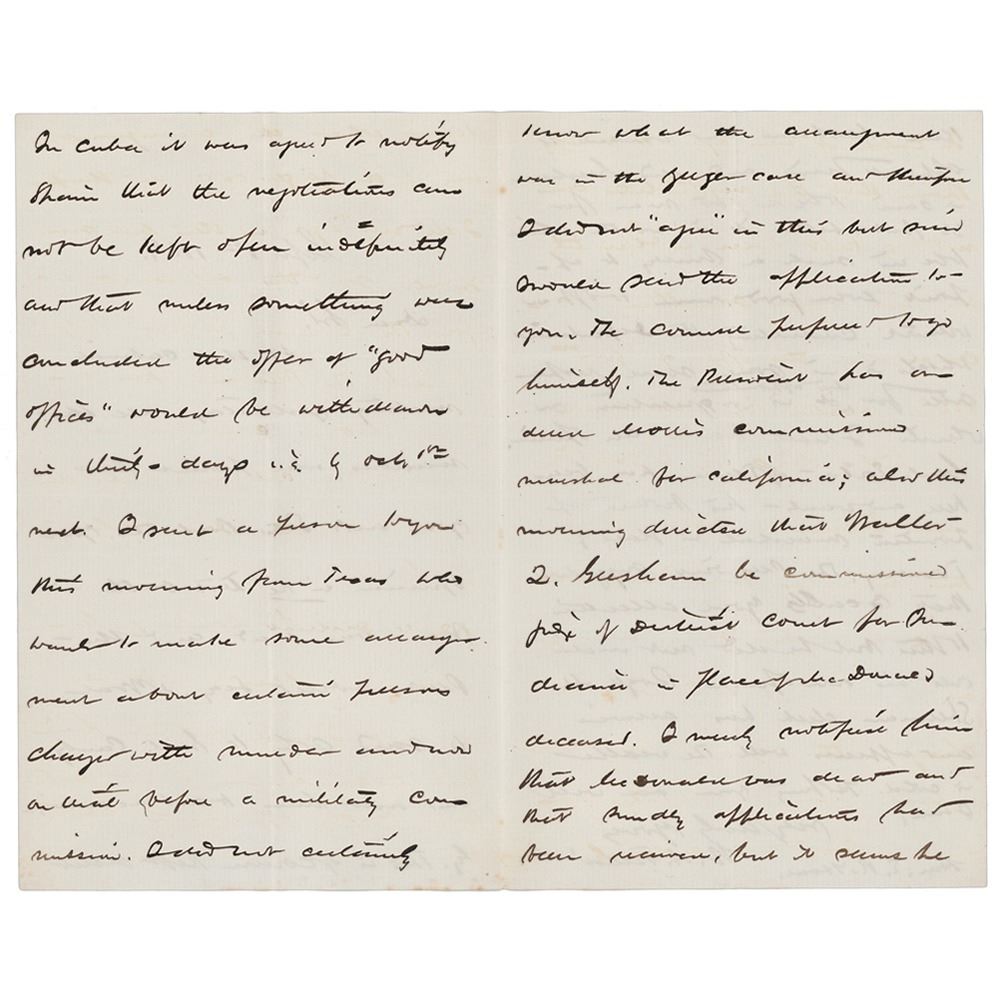 In Cuba it was agreed to notify
Spain that the negotiations can
not be kept open indefinitely
and that unless something was
concluded the offer of "good
offices" would be withdrawn
in thirty days i.e. by Oct 1st
next. I sent a person to you
this morning from Texas who
wants to make some arrange-
ment about certain persons
charged with murder and now
on trial before a military com
mission. I did not certainly
know what the arrangement
was in the Yerger case and therefore
I did not "agree" in this but said
I would send the application to
you. The counsel prefered to go
himself. The President has or
dered Morris commissioned
marshal for California; also this
morning directed that Walter
Q. Gresham be commissioned
judge of District Court for In
diana in place of McDonald
deceased. I merely notified him
that McDonald was dead and
that sundry applications had
been received, but it seems he